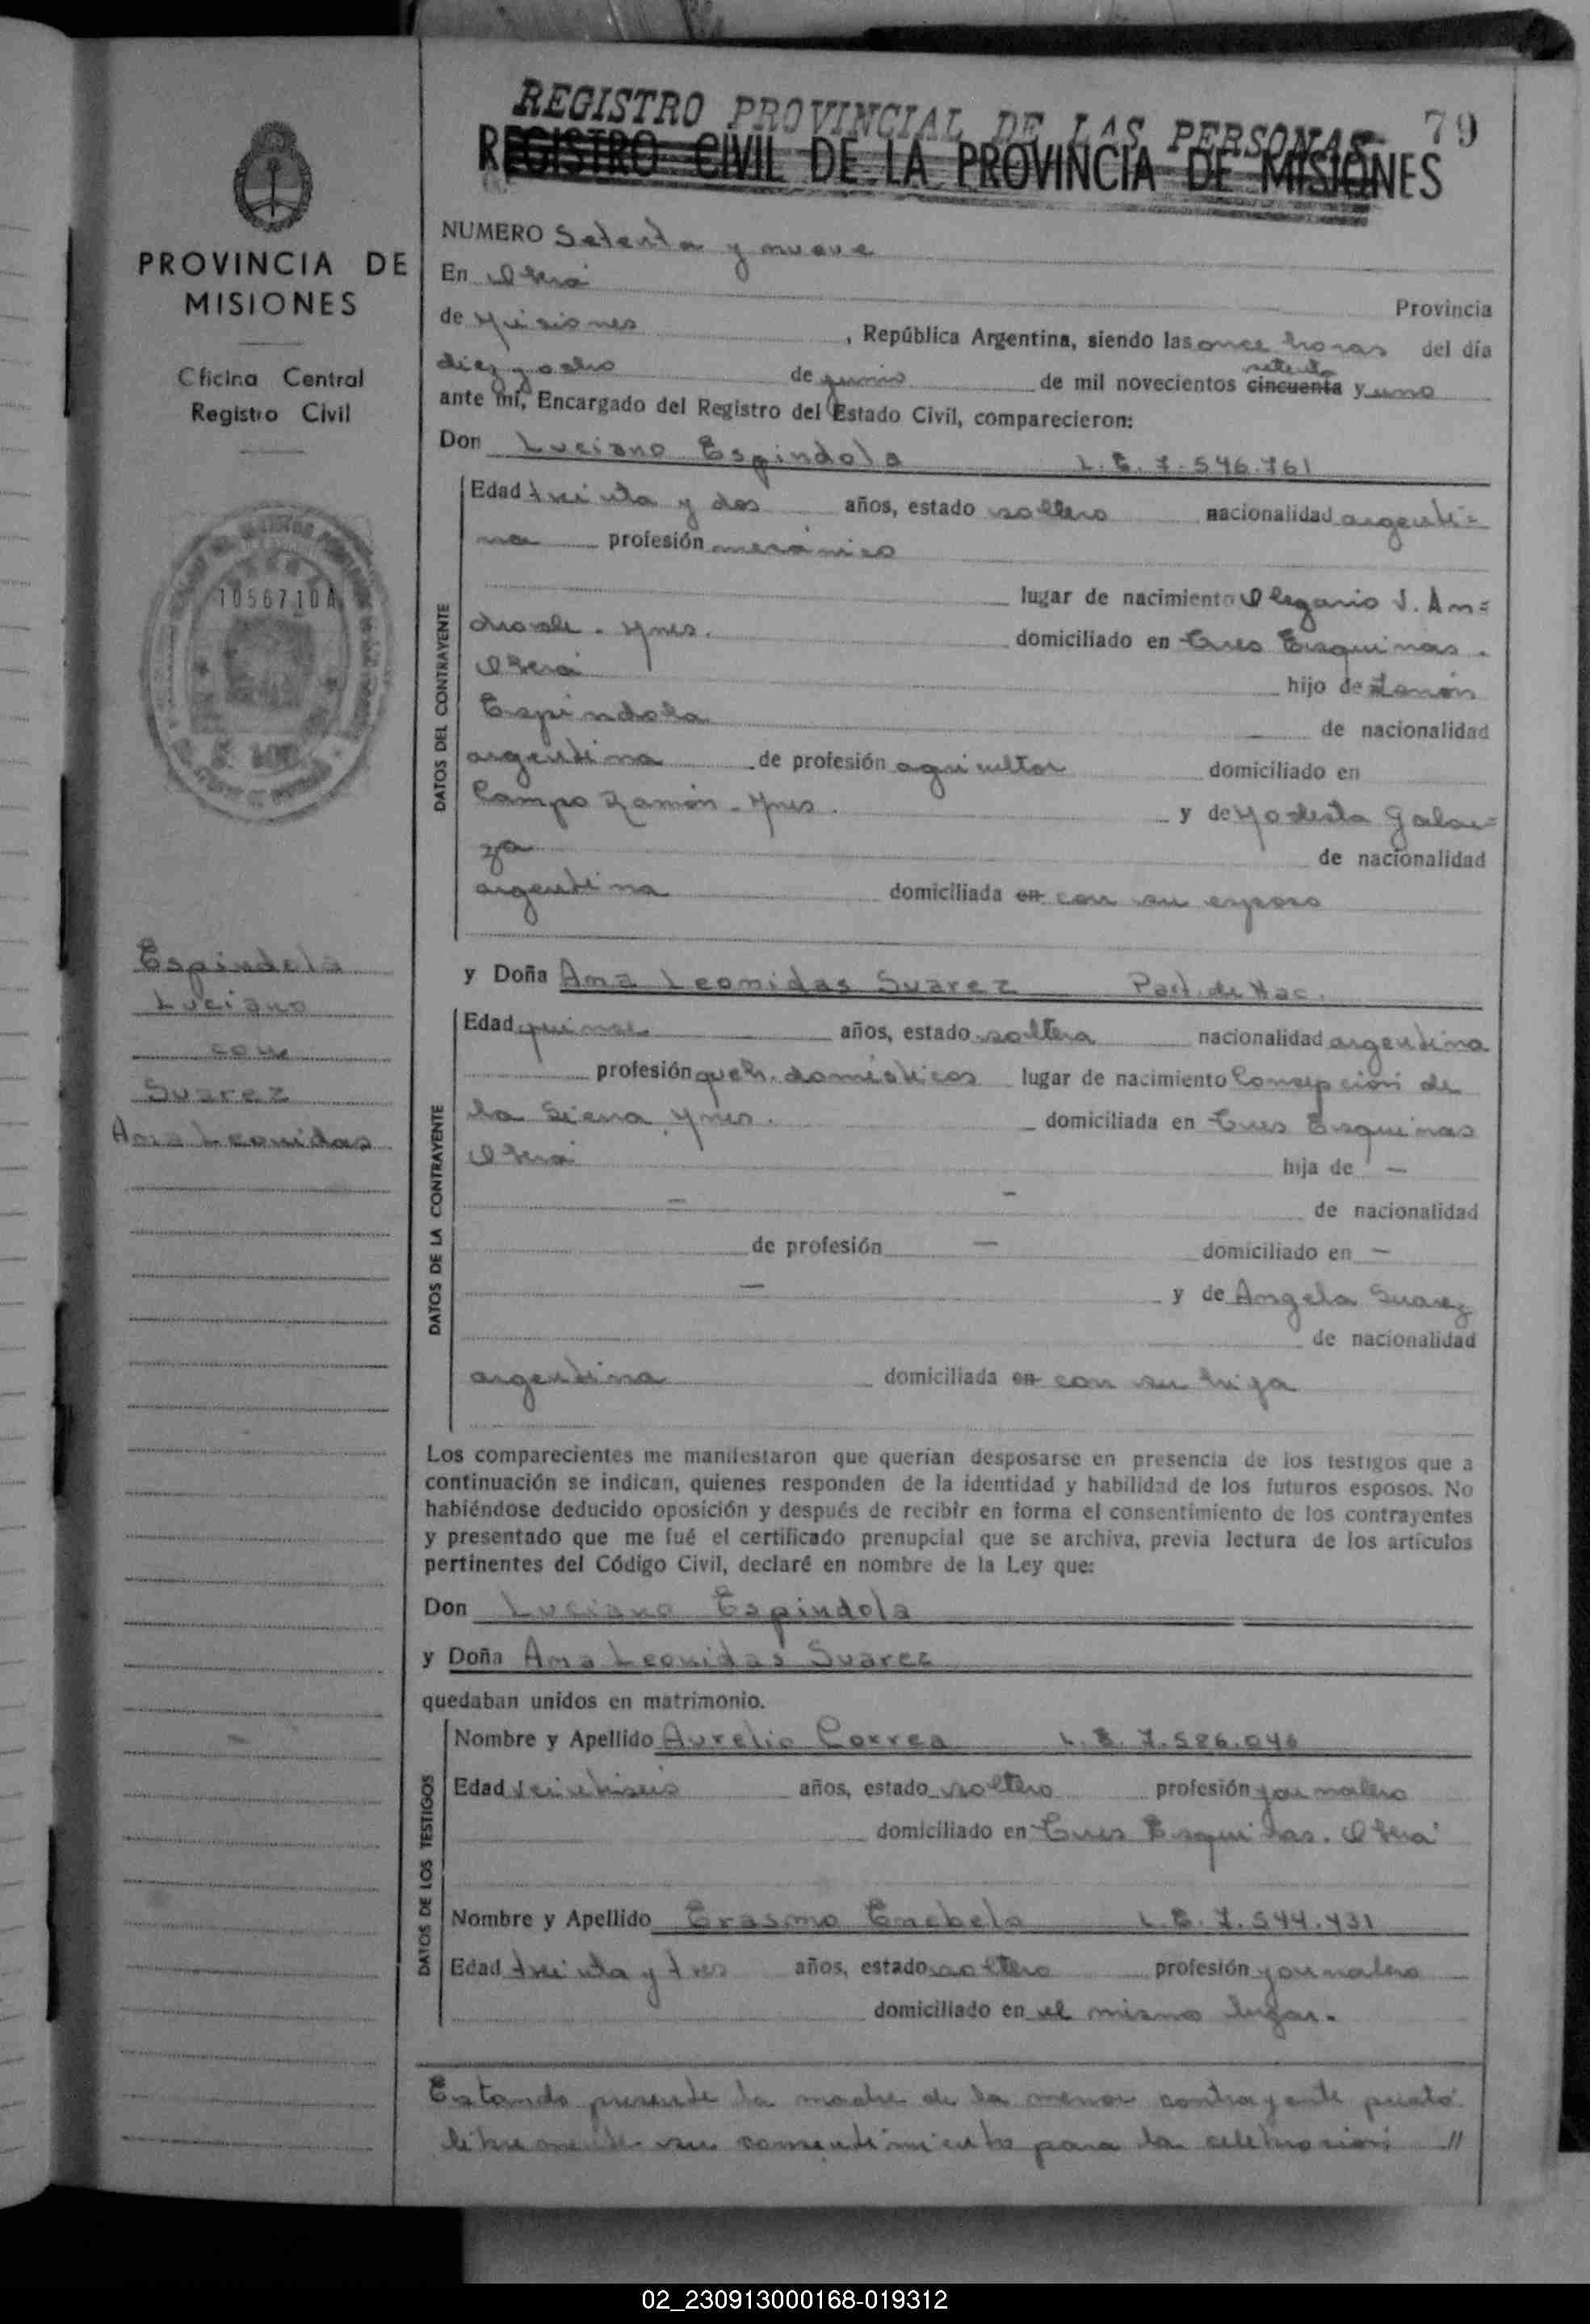 REGISTRO PROVINCIAL DE LAS PERSONAS 79
REGISTRO CIVIL DE LA PROVINCIA DE MISIONES
PROVINCIA DE
MISIONES
Oficina Central
Registro Civil
1056710A
Espindola
Luciano
con
Suarez
Ana Leonidas
NUMERO Setenta y nueve
En Oberá
Provincia
de Misiones, República Argentina, siendo las once horas del día
diez y ocho de junio de mil novecientos cincuenta setenta y uno
ante mí, Encargado del Registro del Estado Civil, comparecieron:
Don Luciano Espindola L.E. 7.546.761
DATOS DEL CONTRAYENTE
Edad treinta y dos años, estado soltero nacionalidad argenti=
na profesión mecánico
lugar de nacimiento Olegario V. An=
drade. Mnes. domiciliado en Tres Esquinas.
Oberá hijo de Zenón
Espindola de nacionalidad
argentina de profesión agricultor domiciliado en
Campo Ramón - Mnes. y de Modesta Galar=
za de nacionalidad
argentina domiciliada en con su esposo
y Doña Ana Leonidas Suarez Part. de Nac.
DATOS DE LA CONTRAYENTE
Edad quince años, estado soltera nacionalidad argentina
profesión queh. domésticos lugar de nacimiento Concepción de
la Sierra, Mnes. domiciliada en Tres Esquinas
Oberá hija de —
— — de nacionalidad
de profesión — domiciliado en —
— y de Angela Suarez
de nacionalidad
argentina domiciliada en con su hija
Los comparecientes me manifestaron que querían desposarse en presencia de los testigos que a
continuación se indican, quienes responden de la identidad y habilidad de los futuros esposos. No
habiéndose deducido oposición y después de recibir en forma el consentimiento de los contrayentes
y presentado que me fué el certificado prenupcial que se archiva, previa lectura de los artículos
pertinentes del Código Civil, declaré en nombre de la Ley que:
Don Luciano Espindola
y Doña Ana Leonidas Suarez
quedaban unidos en matrimonio.
DATOS DE LOS TESTIGOS
Nombre y Apellido Aurelio Correa L.E. 7.586.046
Edad veintiseis años, estado soltero profesión jornalero
domiciliado en Tres Esquinas. Oberá
Nombre y Apellido Erasmo L.E. 7.544.431
Edad treinta y tres años, estado soltero profesión jornalero
domiciliado en el mismo lugar.
Estando presente la madre de la menor contrayente prestó
libremente su consentimiento para la celebración //
02_230913000168-019312